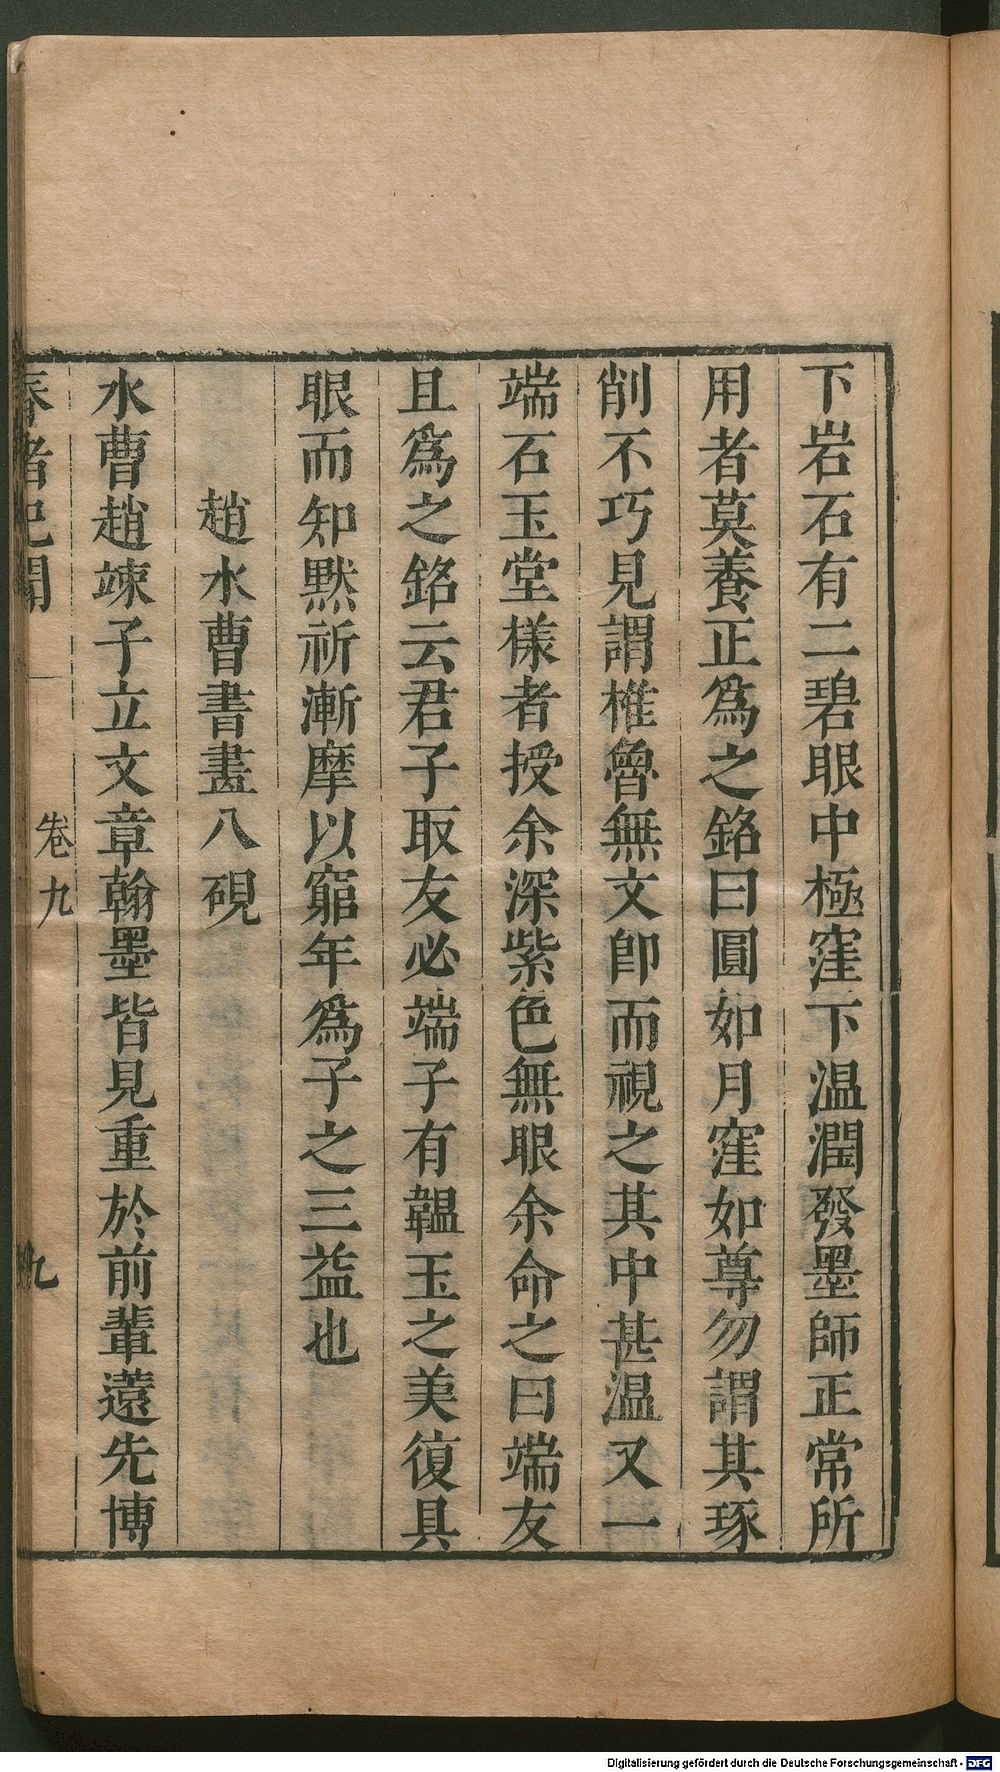 下岩石有二碧眼中極窪下温潤發墨師正常所
用者莫養正爲之銘曰圓如月窪如尊勿謂其琢
削不巧見謂椎魯無文卽而視之其中甚温又一
端石玉堂樣者授余深紫色無眼余命之曰端友
且爲之銘云君子取友必端子有韞玉之美復具
眼而知默祈漸摩以窮年爲子之三益也
趙水曹書畫八硯
水曹趙竦子立文章翰墨皆見重於前輩薳先博
春渚紀聞
卷九
九
Digitalisierung gefördert durch die Deutsche Forschungsgemeinschaft - DFG